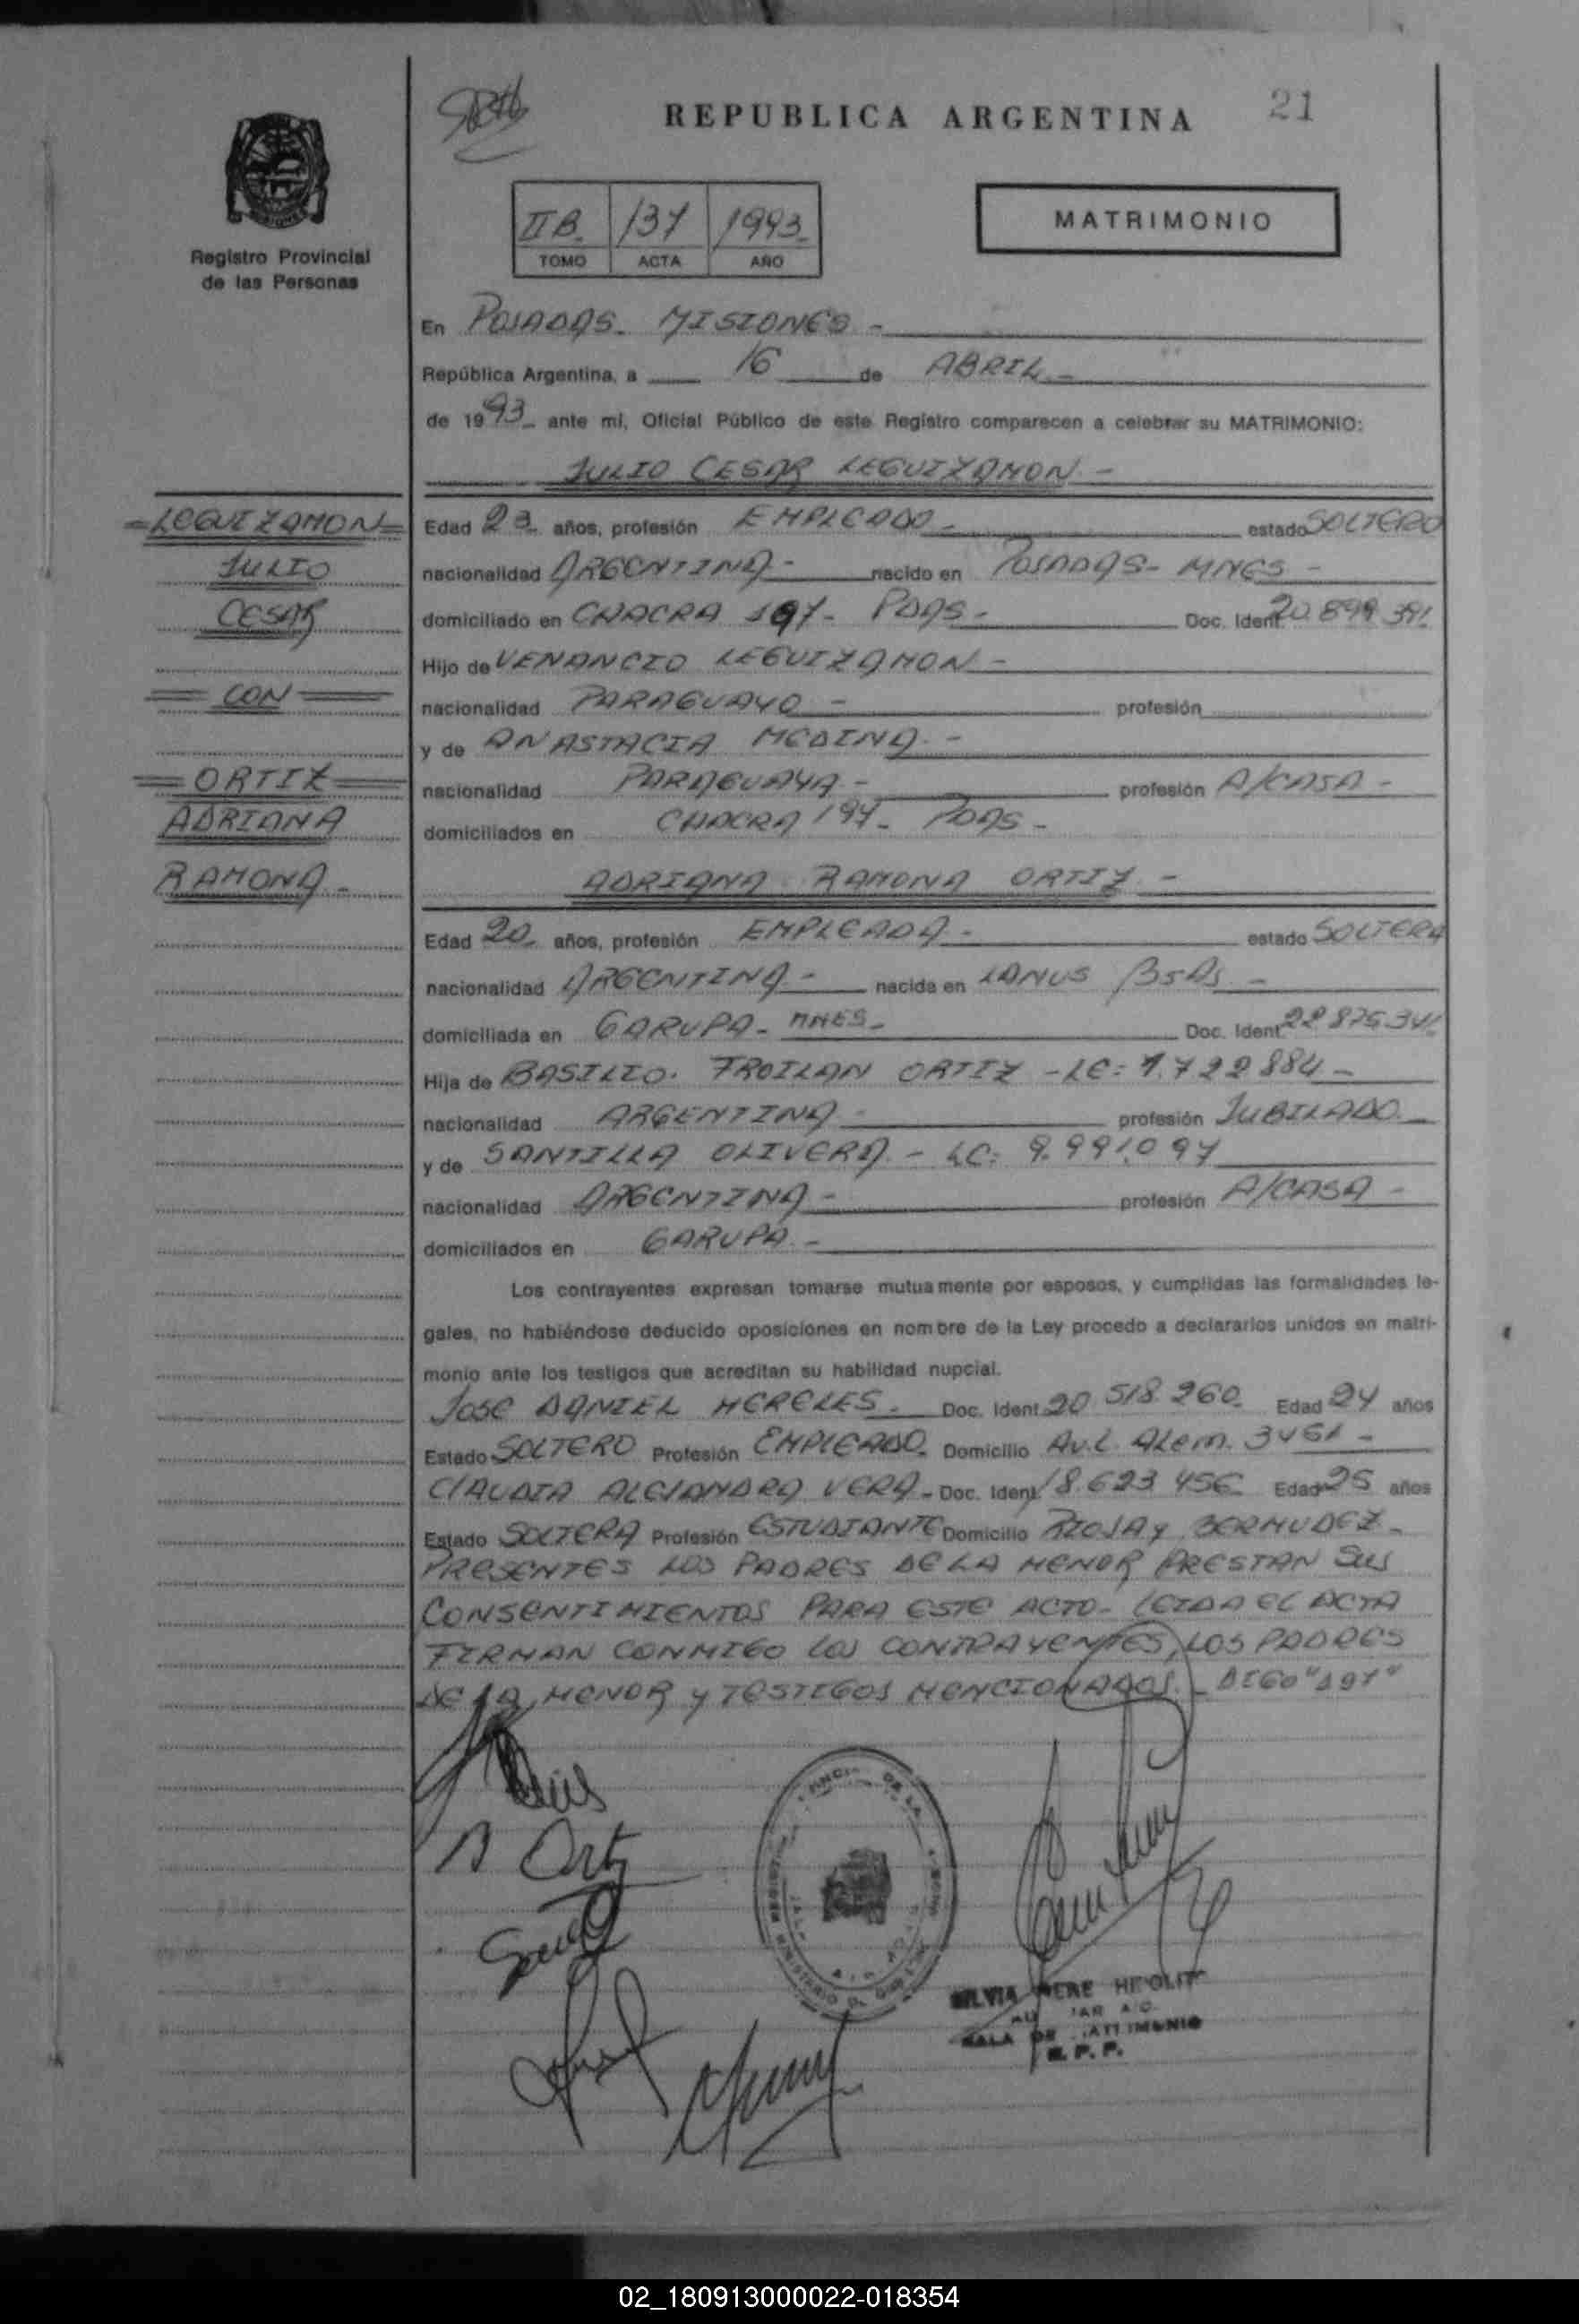 REPUBLICA ARGENTINA
21
IIB. 137 1993.
TOMO ACTA AÑO
MATRIMONIO
Registro Provincial
de las Personas
En POSADAS. MISIONES -
República Argentina, a 16 de ABRIL -
de 1993 ante mi, Oficial Público de este Registro comparecen a celebrar su MATRIMONIO:
JULIO CESAR LEGUIZAMON -
=LEGUIZAMON=
JULIO
CESAR
= CON =
= ORTIZ =
ADRIANA
RAMONA -
Edad 23 años, profesión EMPLEADO - estado SOLTERO
nacionalidad ARGENTINA - nacido en POSADAS - MNES -
domiciliado en CHACRA 197 - PDAS - Doc. Ident. 20.899.391
Hijo de VENANCIO LEGUIZAMON -
nacionalidad PARAGUAYO - profesión
y de ANASTACIA MEDINA -
nacionalidad PARAGUAYA - profesión A/CASA -
domiciliados en CHACRA 197 - PDAS -
ADRIANA RAMONA ORTIZ -
Edad 20 años, profesión EMPLEADA - estado SOLTERA
nacionalidad ARGENTINA - nacida en LANUS BsAs -
domiciliada en GARUPA - MNES - Doc. Ident. 22.875.341
Hija de BASILIO. FROILAN ORTIZ - LE: 1.722.884 -
nacionalidad ARGENTINA - profesión JUBILADO
y de SANTILLA OLIVERA - LC: 9.991.097
nacionalidad ARGENTINA - profesión A/CASA -
domiciliados en GARUPA -
Los contrayentes expresan tomarse mutuamente por esposos, y cumplidas las formalidades le-
gales, no habiéndose deducido oposiciones en nombre de la Ley procedo a declararlos unidos en matri-
monio ante los testigos que acreditan su habilidad nupcial.
JOSE DANIEL MERELES. Doc. Ident. 20 518 260 Edad 24 años
Estado SOLTERO Profesión EMPLEADO Domicilio AV. L. ALem. 3451 -
CLAUDIA ALEJANDRA VERA - Doc. Ident. 18.623 456 Edad 25 años
Estado SOLTERA Profesión ESTUDIANTE Domicilio RIOJA y BERMUDEZ -
PRESENTES LOS PADRES DE LA MENOR PRESTAN SUS
CONSENTIMIENTOS PARA ESTE ACTO - LEIDA EL ACTA
FIRMAN CONMIGO LOS CONTRAYENTES, LOS PADRES
DE LA MENOR y TESTIGOS MENCIONADOS. - DIGO "197"
A Ortiz
SALA DE MATRIMONIO
R. P. P.
02_180913000022-018354